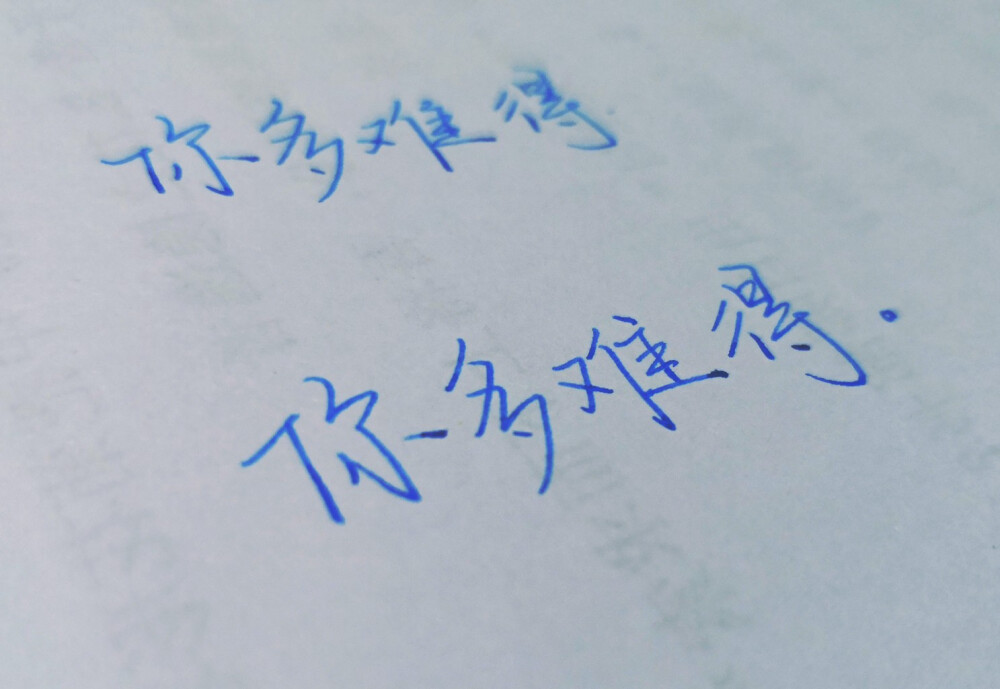 你多难得.
你多难得.